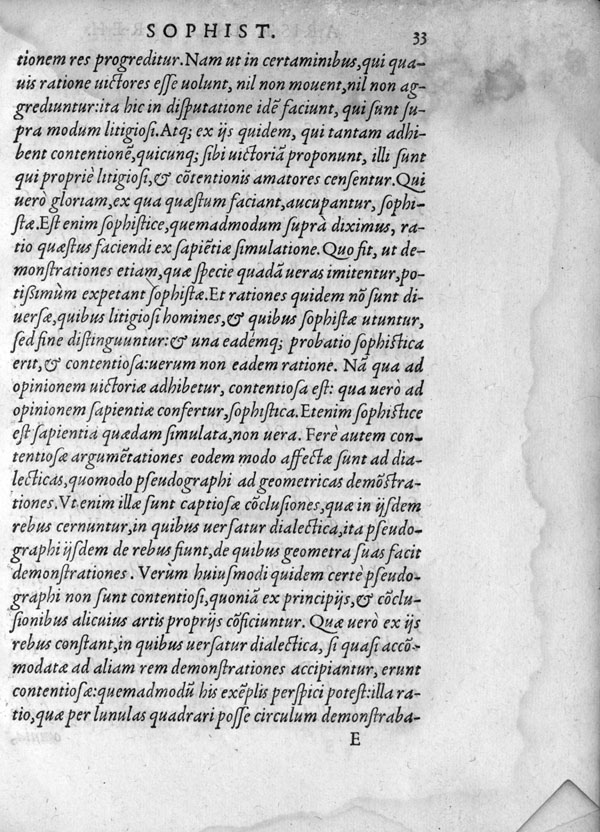 SOPHIST. 33
tionem res progreditur. Nam ut in certaminibus, qui qua-
uis ratione uictores esse uolunt, nil non mouent, nil non ag-
grediuntur: ita hic in disputatione idē faciunt, qui sunt su-
pra modum litigiosi. Atq; ex ijs quidem, qui tantam adhi-
bent contentionē, quicunq; sibi uictoriā proponunt, illi sunt
qui propriè litigiosi, & cōtentionis amatores censentur. Qui
uerò gloriam, ex qua quæstum faciant, aucupantur, sophi-
stæ. Est enim sophistice, quemadmodum suprà diximus, ra-
tio quæstus faciendi ex sapiētiæ simulatione. Quo fit, ut de-
monstrationes etiam, quæ specie quadā ueras imitentur, po-
tißimùm expetant sophistæ. Et rationes quidem nō sunt di-
uersæ, quibus litigiosi homines, & quibus sophistæ utuntur,
sed fine distinguuntur: & una eademq; probatio sophistica
erit, & contentiosa: uerum non eadem ratione. Nā qua ad
opinionem uictoriæ adhibetur, contentiosa est: qua uerò ad
opinionem sapientiæ confertur, sophistica. Etenim sophistice
est sapientia quædam simulata, non uera. Ferè autem con-
tentiosæ argumētationes eodem modo affectæ sunt ad dia-
lecticas, quomodo pseudographi ad geometricas demōstra-
tiones. Vt enim illæ sunt captiosæ cōclusiones, quæ in ijsdem
rebus cernuntur, in quibus uersatur dialectica, ita pseudo-
graphi ijsdem de rebus fiunt, de quibus geometra suas facit
demonstrationes. Verùm huiusmodi quidem certè pseudo-
graphi non sunt contentiosi, quoniā ex principijs, & cōclu-
sionibus alicuius artis proprijs cōficiuntur. Quæ uerò ex ijs
rebus constant, in quibus uersatur dialectica, si quasi accō-
modatæ ad aliam rem demonstrationes accipiantur, erunt
contentiosæ: quemadmodū his exēplis perspici potest: illa ra-
tio, quæ per lunulas quadrari posse circulum demonstraba-
E